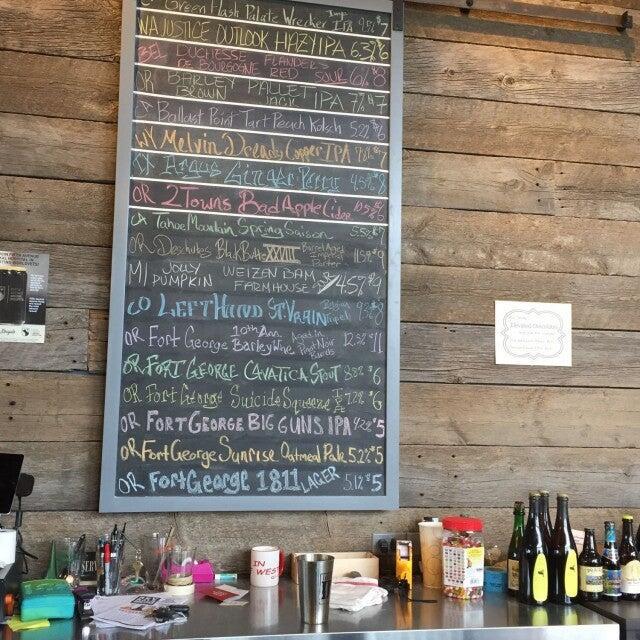 Green Flash Palate Wrecker Imp. IPA 9.5% $7
WA JUSTICE OUTLOOK HAZY IPA 6.3% $6
BEL DUCHESSE DE BOURGOGNE FLANDERS RED SOUR 6% $8
OR BARLEY BROWN PALLET JACK IPA 7% $7
Ballast Point Tart Peach Kolsch 5.2% $6
WY Melvin Dready Copper IPA $7
Argus Ginger Perry 4.5% $8
OR 2 Towns Bad Apple Cider 10.5% $6
CA Tahoe Mountain Spring Saison 5.5%
OR Deschutes Black Butte XXVIII Barrel Aged Imperial Porter $9
MI JOLLY PUMPKIN WEIZEN BAM FARMHOUSE 4.5% $9
CO LEFT HAND ST VRAIN Tripel
OR Fort George 10th Ann. Barley Wine Aged in Pinot Noir Barrels 12.5% $11
OR FORT GEORGE CAVATICA STOUT 8.8% $6
OR Fort George Suicide Squeeze $6
OR FORT GEORGE BIG GUNS IPA $5
OR Fort George Sunrise Oatmeal Pale 5.2% $5
OR Fort George 1811 LAGER 5.1% $5
IN
WEST